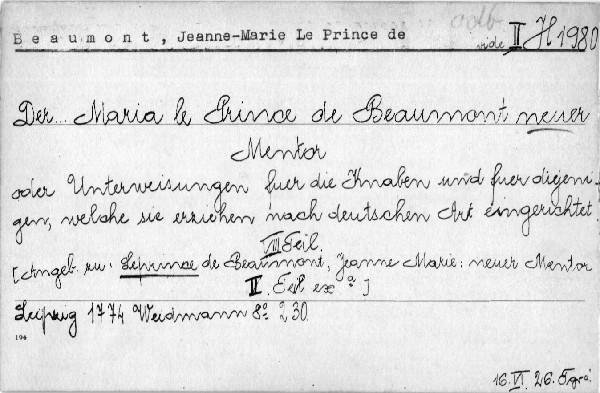 Beaumont, Jeanne-Marie Le Prince de vide II H 1980
Der... Maria le Prince de Beaumont neuer
Mentor
oder Unterweisungen fuer die Knaben und fuer digeni-
gen, welche sie erziehen nach deutschen Art eingerichtet.
VIII Teil.
[Angeb. zu: Leprince de Beaumont, Jeanne Marie: neuer Mentor
II. Teil ex a]
Leipzig 1774 Weidmann 8° 230.
194
16. VI. 26.